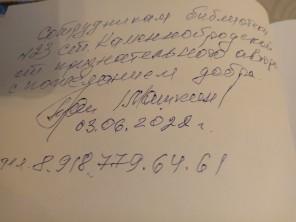 Сотрудникам библиотеки
№23 ст. Каменнобродской
от признательного автора
с пожеланием добра
03.06.2022 г.
8.918.779.64.61